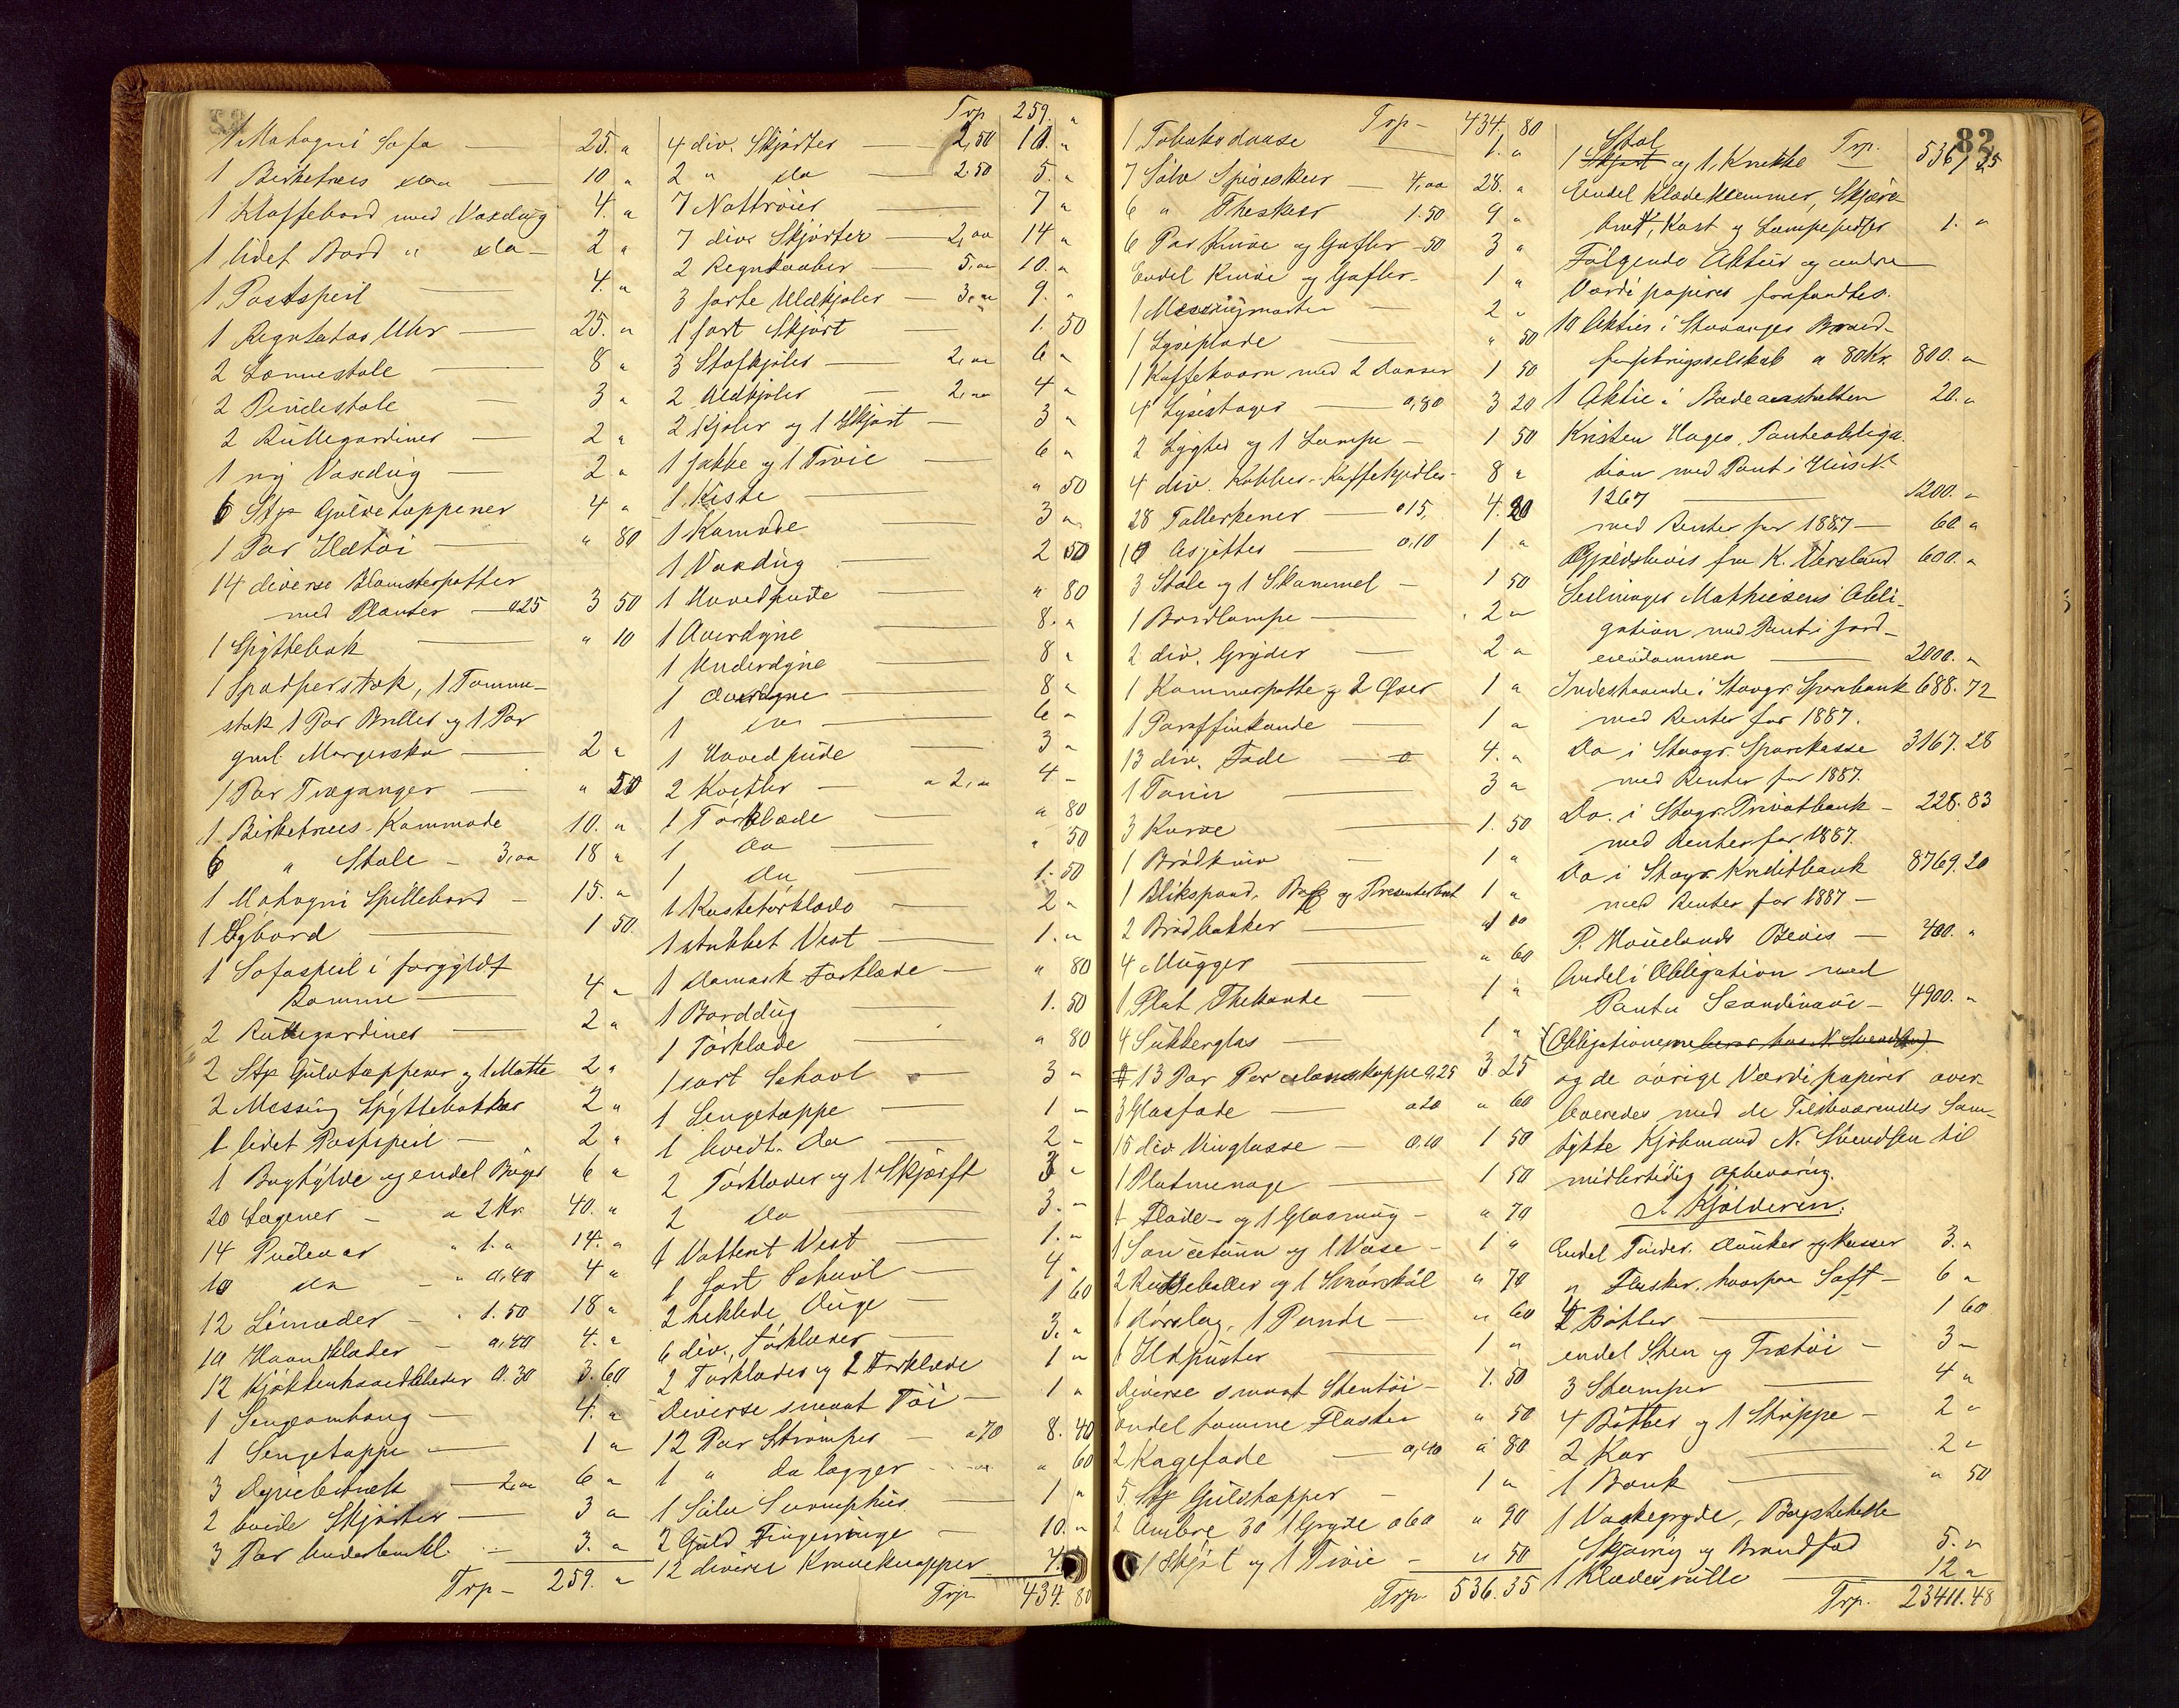 1 Mahogni Sofa — 25. "
1 Birketræes do — 10 "
1 Klaffebord med Voxdug 4. "
1 lidet Bord " do — 2 "
1 Postspeil — 4. "
1 Regulator Uhr — 25. "
2 Lænnestole — 8 "
2 Pindestole — 3 "
2 Rullegardiner — 2 "
1 ny Voxdug — 2 "
6 Stk Gulvetæppener 4 "
1 Par Ildtøi — " 80
14 diverse Blomsterpotter
med Planter — a 25 3 50
1 Spyttebak — " 10
1 Spadserstok, 1 Tomme-
stok 1 Par Briller og 1 Par
gml. Morgensko — 2 "
1 Par Træganger — " 50
1 Birketræes Kommode 10. "
6 " Stole — 3,00 18 "
1 Mahogni Spillebord — 15. "
1 Sybord — 1 50.
1 Sofaspeil i forgyldt
Ramme — 4 "
2 Rullegardiner — 2 "
2 Stk Gulvtæppener og 1 Matte 2 "
2 Messing Spyttebakker 2 "
1 lidet Postspeil — 2 "
1 Boghylde og endel Bøger 6 "
20 Lagener — a 2 Kr 40. "
14 Pudevar " 1. " 14. "
10 do — " 0,40 4 "
12 Linneder — " 1.50 18 "
10 Haandklæder — 0,40 4. "
12 Kjøkkenhaandklæder 0.30 3.60
1 Sengeomhang — 4. "
1 Sengetæppe — 1 "
3 Dynebetræk — 2,00 6 "
2 hvide Skjørter — 3 "
3 Par Underbenkl. — 3. "
Trp — 259. "
Trp 259. "
4 div. Skjorter — 2,50 10. "
2 " do — 2.50 5. "
7 Nattrøier — 7 "
7 div. Skjorter — 2,00 14 "
2 Regnkaaber — 5,00 10. "
3 sorte Uldkjoler — 3,00 9. "
1 sort Skjørt 1. 50
3 Stofkjoler — 2,00 6 "
2 Uldkjoler — 2,00 4 "
2 Kjoler og 1 Skjørt — 3 "
1 Jakke og 1 Trøie — 6 "
1 Kiste — " 50
1 Komode — 3 "
1 Voxdug — 2 50
1 Hovedpude — " 80
1 Overdyne — 8. "
1 Underdyne — 8 "
1 Overdyne — 8 "
1 do — 6 "
1 Hovedpude — 3 "
2 Kofter — a 2,00 4 —
1 Tørklæde — " 80
1 do — " 50
1 do — 1. 50
1 Kastetørklæde — 2 "
1 strikket Vest — 1. "
1 Damask Tørklæde — " 80
1 Borddug — 1. 50
1 Tørklæde — " 80
1 sort Schavl — 3 "
1 Sengetæppe — 1 "
1 hvidt do — 2 "
2 Tørklæder og 1 Skjærft 3 "
2 do — 3. "
1 Vattert Vest — 1. "
1 Sort Schavl — 4 "
2 heklede Duge — 1 60
6 div. Tørklæder — 3. "
2 Tørklæder og 2 Forklæde 1 "
Diverse smaat Tøi — 1 "
12 Par Strømper — a 70 8. 40
1 " do lægger — " 60
1 Sølv Svamphus — 1 "
2 Guld Fingerringe — 10. "
12 diverse Kraveknapper 4.
Trp. 434. 80
Trp — 434. 80
1 Tobaksdaase — 1. "
7 Sølv Spiseskeer — 4,00 28. "
6 " Theskeer 1.50 9 "
6 Par Knive og Gafler — 50 3 "
Endel Knive og Gafler — 1 "
1 Messingmorter — 2 "
1 Lyseplade — " 50
1 Kaffekværn med 2 Daaser 1 50
4 Lysestager — 0,80 3 20
2 Lygter og 1 Lampe — 1 50
4 div. Kobber-Kaffekjedler — 8 "
28 Tallerkener — 0 15, 4. 20
10 Asjetter — 0,10 1 "
3 Stole og 1 Skammel — 1 50
1 Bordlampe — 2 "
2 div. Gryder — 2 "
1 Kammerpotte og 2 Øser 1 "
1 Paraffinkande — 1 "
13 div. Fade — 4. "
1 Terrin — 3 "
3 Kurve — 1. 50
1 Brødkniv — 1 "
1 Blikspand, Bøtte og Presenterbræt 1 "
2 Brødbakker — 1 00
4 Mugger — " 60
1 Plet Thekande — 1 "
4 Sukkerglas — 1 "
13 Par Porcelænskoppe 0,25 3 25
3 Glasfade — 0 20 " 60
15 div Vinglasse — 0,10 1 50
1 Pletmenage — 1 50
1 Fløde- og 1 Glasmug — " 70
1 Saucetein og 1 Vase — 1 "
2 Rulleballer og 1 Smørskål " 70
1 Dørslag, 1 Pande — " 60
1 Ildpuster — 1 "
Diverse smaat Stentøi — 1. 50
Endel tomme Flasker " 50
2 Kagefade — 0,40 " 80
5 Stk Gulvtæpper — 1 "
2 Ambre 30 1 Gryde 0 60 " 90
1 Skjørt og 1 Trøie — " 50
Trp. 536. 35
82
Stol
1 Skjørt og 1 Krukke Trp. — 536, 35
Endel Klædeklemmer, Skjære-
bræt, Kost og Lampepudser 1. "
Følgende Aktier og andre
Værdipapirer forefandtes.
10 Aktier i Stavanger Brand-
forsikringsselskab a 80 Kr. 800. "
1 Aktie i Badeanstalten 20. "
Kristen Hages Panteobliga-
tion med Pant i Hus No
1267 — 1200. "
med Renter for 1887 — 60 "
Gjældsbevis fra K. Versland 600. "
Seilmager Mathiesens Obli-
gation med Pant i Jord-
eiendommen — 2000. "
Indestaaende i Stavgr. Sparebank 688. 72
med Renter for 1887.
Do i Stavgr. Sparekasse 3167. 28
med Renter for 1887.
Do. i Stavgr. Privatbank — 228. 83
med Renter for 1887.
Do i Stavgr. Kreditbank 8769. 20
med Renter for 1887 —
P. Houelands Bevis — 400. "
Andel i Obligation med
Pant i Scandinavi — 4900. "
(Obligationerne beror hos N. Svendsen)
og de øvrige Værdipapirer over-
leveredes med de Tilstedværendes Sam-
tykke Kjøbmand N. Svendsen til
midlertidig Opbevaring.
I Kjælderen:
Endel Tønder, Dunker og Kasser 3. "
" Flasker, hvorpaa Saft — 6 "
4 Bøtter — 1 60
endel Sten og Trætøi — 3 —
3 Stamper — 4 "
4 Bøtter og 1 Skrippe — 2 "
2 Kar — 2 "
1 Bænk — " 50
1 Vaskegryde, Bagstehelle
Skjæring og Brandfad 5. "
1 Klæderulle — 12 "
Trp. 23411. 48